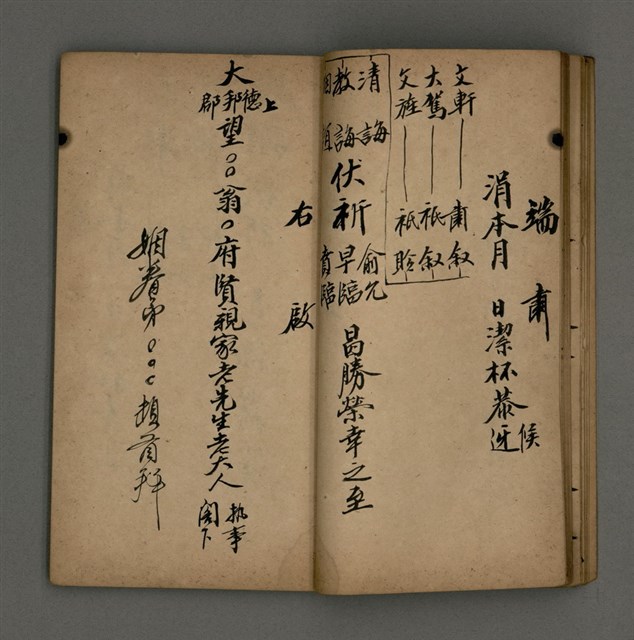 端肅
涓本月 日潔杯恭候
迓
文軒｜肅叙
大駕｜祇叙
文旌｜祇聆
清誨
教誨伏祈俞允
早臨
賁臨
曷勝榮幸之至
右啟
上
大德邦郡望○○翁○府賢親家老先生老大人執事
閣下
姻眷弟○○○頓首拜